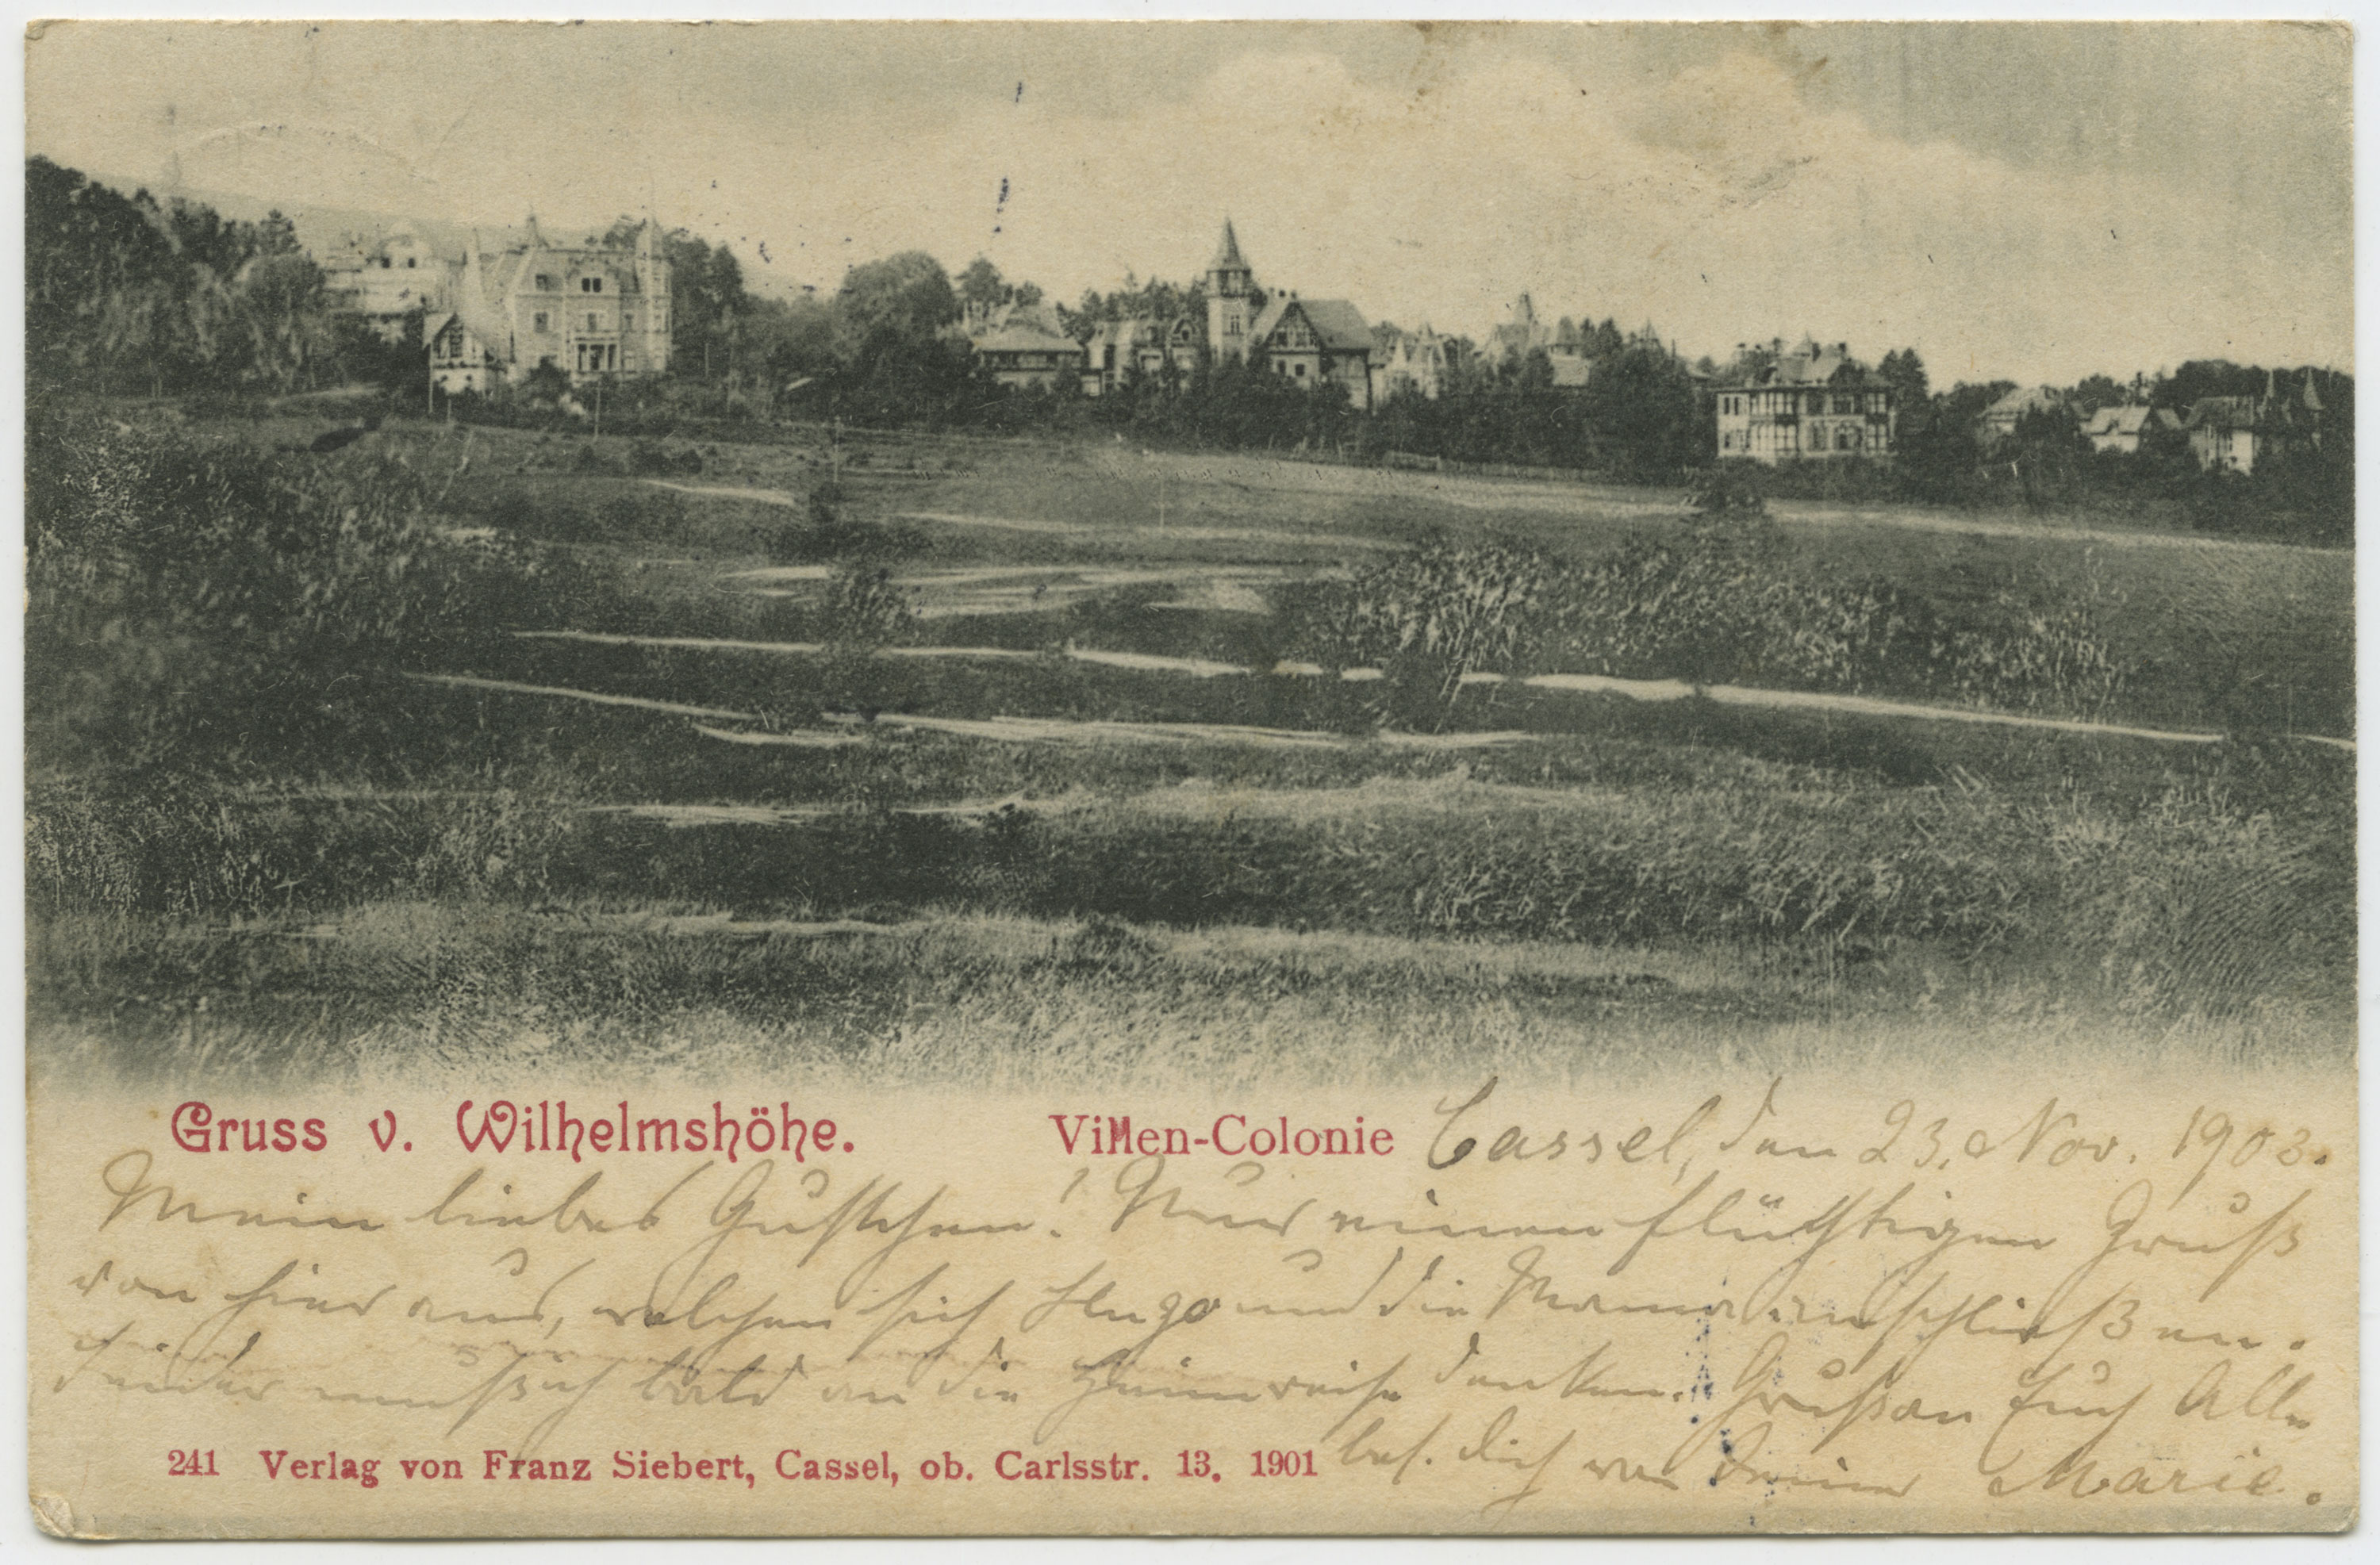 Gruss v. Wilhelmshöhe. Villen-Colonie Cassel, den 23. Nov. 1903.
Mein liebes Gustchen! Nur einen flüchtigen Gruß
von hier aus, welchen sich Hugo und die Mama anschließen.
Leider muß ich bald an die Heimreise denken. Grüße an Euch Alle
bes. dich von Deiner Marie.
241 Verlag von Franz Siebert, Cassel, ob. Carlsstr. 13. 1901